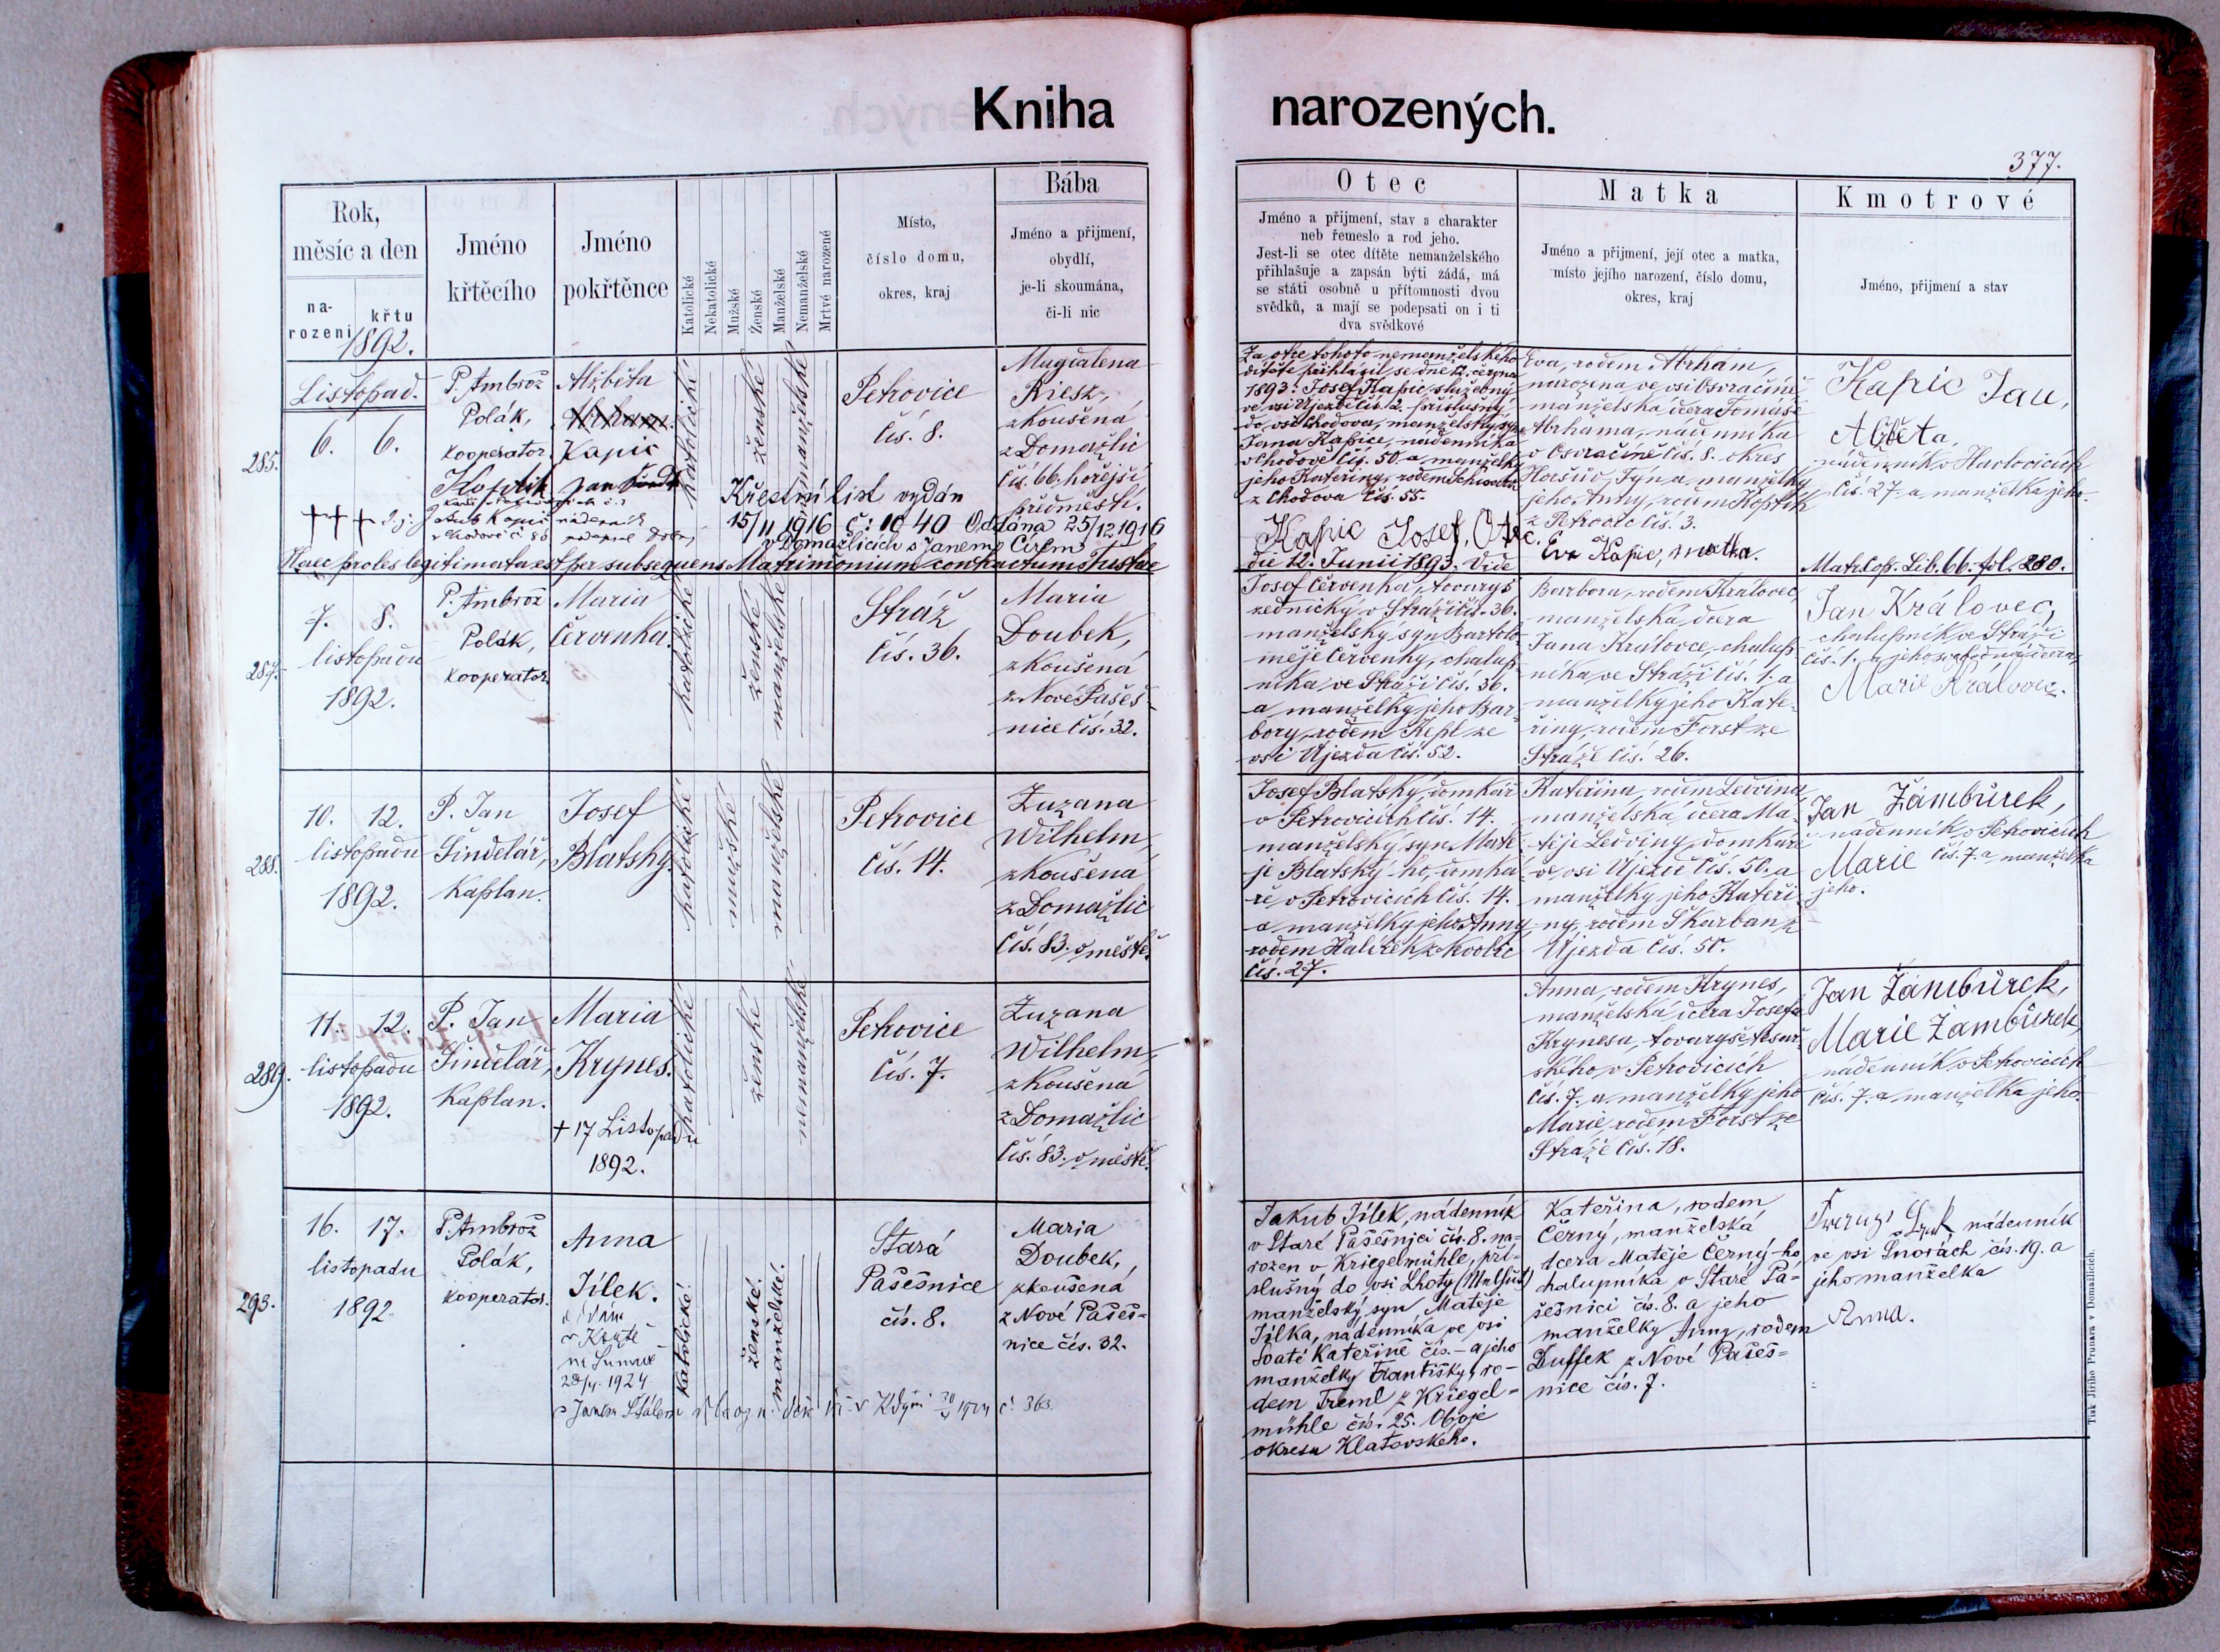 Kniha narozených.
377.
Rok,
měsíc a den
na-
rozeni
křtu
1892.
Jméno
křtěcího
Jméno
pokřtěnce
Katolické
Nekatolické
Mužské
Ženské
Manželské
Nemanželské
Mrtvé narozené
Místo,
číslo domu,
okres, kraj
Bába
Jméno a přijmení,
obydlí,
je-li skoumána,
či-li nic
Otec
Jméno a přijmení, stav a charakter
neb řemeslo a rod jeho.
Jest-li se otec dítěte nemanželského
přihlašuje a zapsán býti žádá, má
se státi osobně u přítomnosti dvou
svědků, a mají se podepsati on i ti
dva svědkové
Matka
Jméno a přijmení, její otec a matka,
místo jejího narození, číslo domu,
okres, kraj
Kmotrové
Jméno, přijmení a stav
285.
Listopad.
6. 6.
P. Ambrož
Polák,
kooperator.
Alžběta
Abrham.
Kapic
katolické
ženské
nemanželské
Petrovice
čís. 8.
Magdalena
Riesz,
zkoušená
z Domažlic
čís. 66. hořejší
předměstí.
Křestní list vydán
15/11 1916 č: 1040 Oddána 25/12 1916
v Domažlicích s Janem Círlem
Haec proles legitimata est per subsequens Matrimonium contractum Tusthae
Za otce tohoto nemanželského
dítěte přihlásil se dne 12. června
1893: Josef Kapic, služebný
ve vsi Újezdě čís. 2. příslušný
do vsi Chodova, manželský syn
Jana Kapice, nádenníka
v Chodově čís. 50. a manželky
jeho Kateřiny, rodem
z Chodova čís. 55.
Kapic Josef, Otec.
die 12. Junii 1893. Vide
Eva, rodem Abrhám,
narozena ve vsi Osvračíně,
manželská dcera Tomáše
Abrhama, nádenníka
v Osvračíně čís. 8. okres
Horšův Týn a manželky
jeho Anny, rodem Kopřik
z Petrovic čís. 3.
Eva Kapic, matka.
Kapic Jan,
Alžběta,
nádenník v Havlovicích
čís. 27. a manželka jeho.
Matr. Cop. Lib. 66. fol. 280.
287.
7. 8.
listopadu
1892.
P. Ambrož
Polák,
kooperator.
Maria
Červenka.
katolické
ženské
manželské
Stráž
čís. 36.
Maria
Doubek,
zkoušená
z Nové Pašeš-
nice čís. 32.
Josef Červenka, tovaryš
zednický v Stráži čís. 36.
manželský syn Bartolo-
měje Červenky, chalup-
níka ve Stráži čís. 36.
a manželky jeho Bar-
bory, rodem Kepl ze
vsi Újezda čís. 52.
Barbora, rodem Královec,
manželská dcera
Jana Královce, chalup-
níka ve Stráži čís. 1. a
manželky jeho Kate-
řiny, rodem Forst ze
Stráže čís. 26.
Jan Královec,
chalupník ve Stráži
čís. 1. a jeho svobodná dcera,
Marie Královec.
288.
10. 12.
listopadu
1892.
P. Jan
Šindelář,
Kaplan.
Josef
Blatský.
katolické
mužské
manželské
Petrovice
čís. 14.
Zuzana
Wilhelm,
zkoušená
z Domažlic
čís. 83. v městě.
Josef Blatský, domkář
v Petrovicích čís. 14.
manželský syn Matě-
je Blatský-ho, domká-
ře v Petrovicích čís. 14.
a manželky jeho Anny,
rodem Halíček z Kvolic
čís. 27.
Kateřina, rodem Ledvina,
manželská dcera Ma-
těje Ledviny, domkáře
ve vsi Újezdě čís. 50. a
manželky jeho Kateři-
ny, rodem Škarban z
Újezda čís. 50.
Jan Žambůrek,
nádenník v Petrovicích
Marie čís. 7. a manželka
jeho.
289.
11. 12.
listopadu
1892.
P. Jan
Šindelář,
Kaplan.
Maria
Krynes.
+ 17 Listopadu
1892.
katolické
ženské
nemanželské
Petrovice
čís. 7.
Zuzana
Wilhelm,
zkoušená
z Domažlic
čís. 83. v městě.
Anna, rodem Krynes,
manželská dcera Josefa
Krynesa, tovaryše tesař-
ského v Petrovicích
čís. 7. a manželky jeho
Marie, rodem Forst ze
Stráže čís. 18.
Jan Žambůrek,
Marie Žambůrek,
nádenník v Petrovicích
čís. 7. a manželka jeho.
293.
16. 17.
listopadu
1892.
P. Ambrož
Polák,
kooperator.
Anna
Jílek.
28/4. 1924
s Janem
katolické.
ženské.
manželské.
Stará
Pašešnice
čís. 8.
Maria
Doubek,
zkoušená
z Nové Pašeš-
nice čís. 32.
v Kdyni 1924 č. 363.
Jakub Jílek, nádenník
v Staré Pašešnici čís. 8. na-
rozen v Kriegelmühle, pří-
slušný do vsi Lhoty (Melhůt)
manželský syn Matěje
Jílka, nádenníka ve vsi
Svaté Kateřině čís. - a jeho
manželky Františky, ro-
dem Treml z Kriegel-
mühle čís. 25. Obojé
okresu Klatovského.
Kateřina, rodem
Černý, manželská
dcera Matěje Černý-ho,
chalupníka v Staré Pa-
šešnici čís. 8. a jeho
manželky Anny, rodem
Duffek z Nové Pašeš-
nice čís. 7.
nádenník
ve vsi Šnorách čís. 19. a
jeho manželka
Anna.
Tisk Jiřího Prunara v Domažlicích.